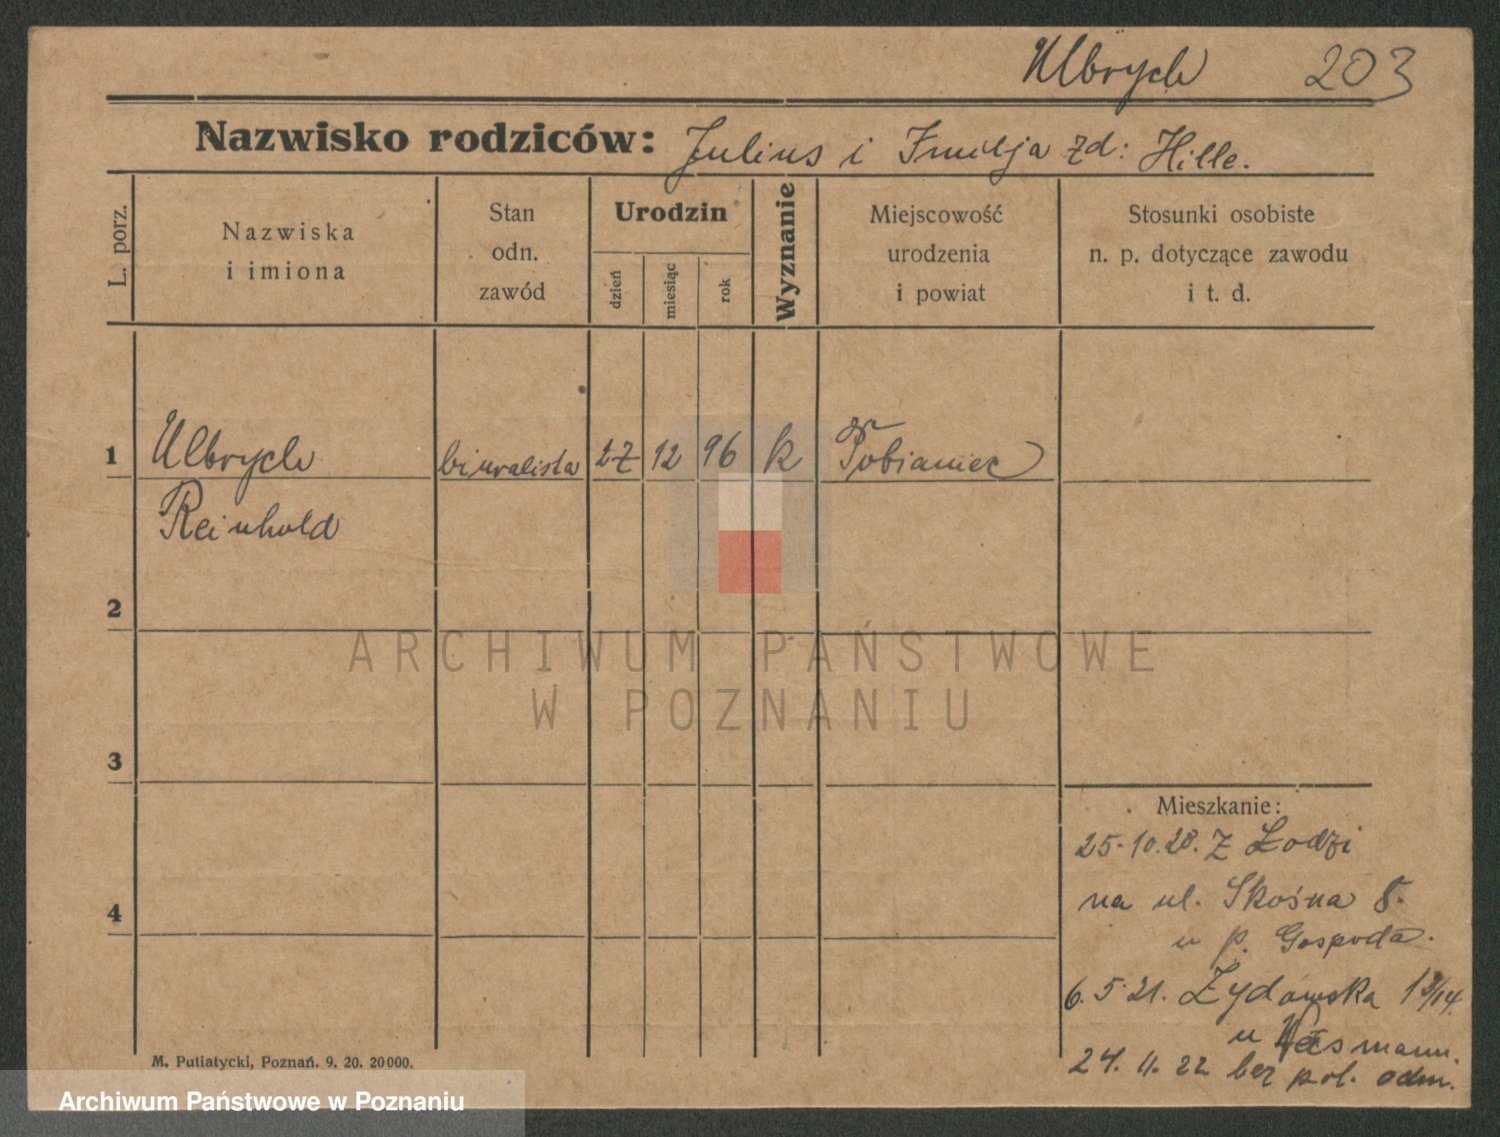 Ulbrych 203
Nazwisko rodziców: Julius i Emilja zd: Hille.
L. porz.
Nazwiska
i imiona
Stan
odn.
zawód
Urodzin
dzień
miesiąc
rok
Wyznanie
Miejscowość
urodzenia
i powiat
Stosunki osobiste
n. p. dotyczące zawodu
i t. d.
1 Ulbrych biuralista 27 12 96 k Pobianiec
Reinhold
2
3
4
Mieszkanie:
25.10.20. z Łodzi
na ul. Skośna 8.
u p. Gospoda.
6.5.21. Żydowska 13/14.
u
24.11.22 bez pol. odm.
M. Putiatycki, Poznań. 9. 20. 20000.
ARCHIWUM PAŃSTWOWE
W POZNANIU
Archiwum Państwowe w Poznaniu